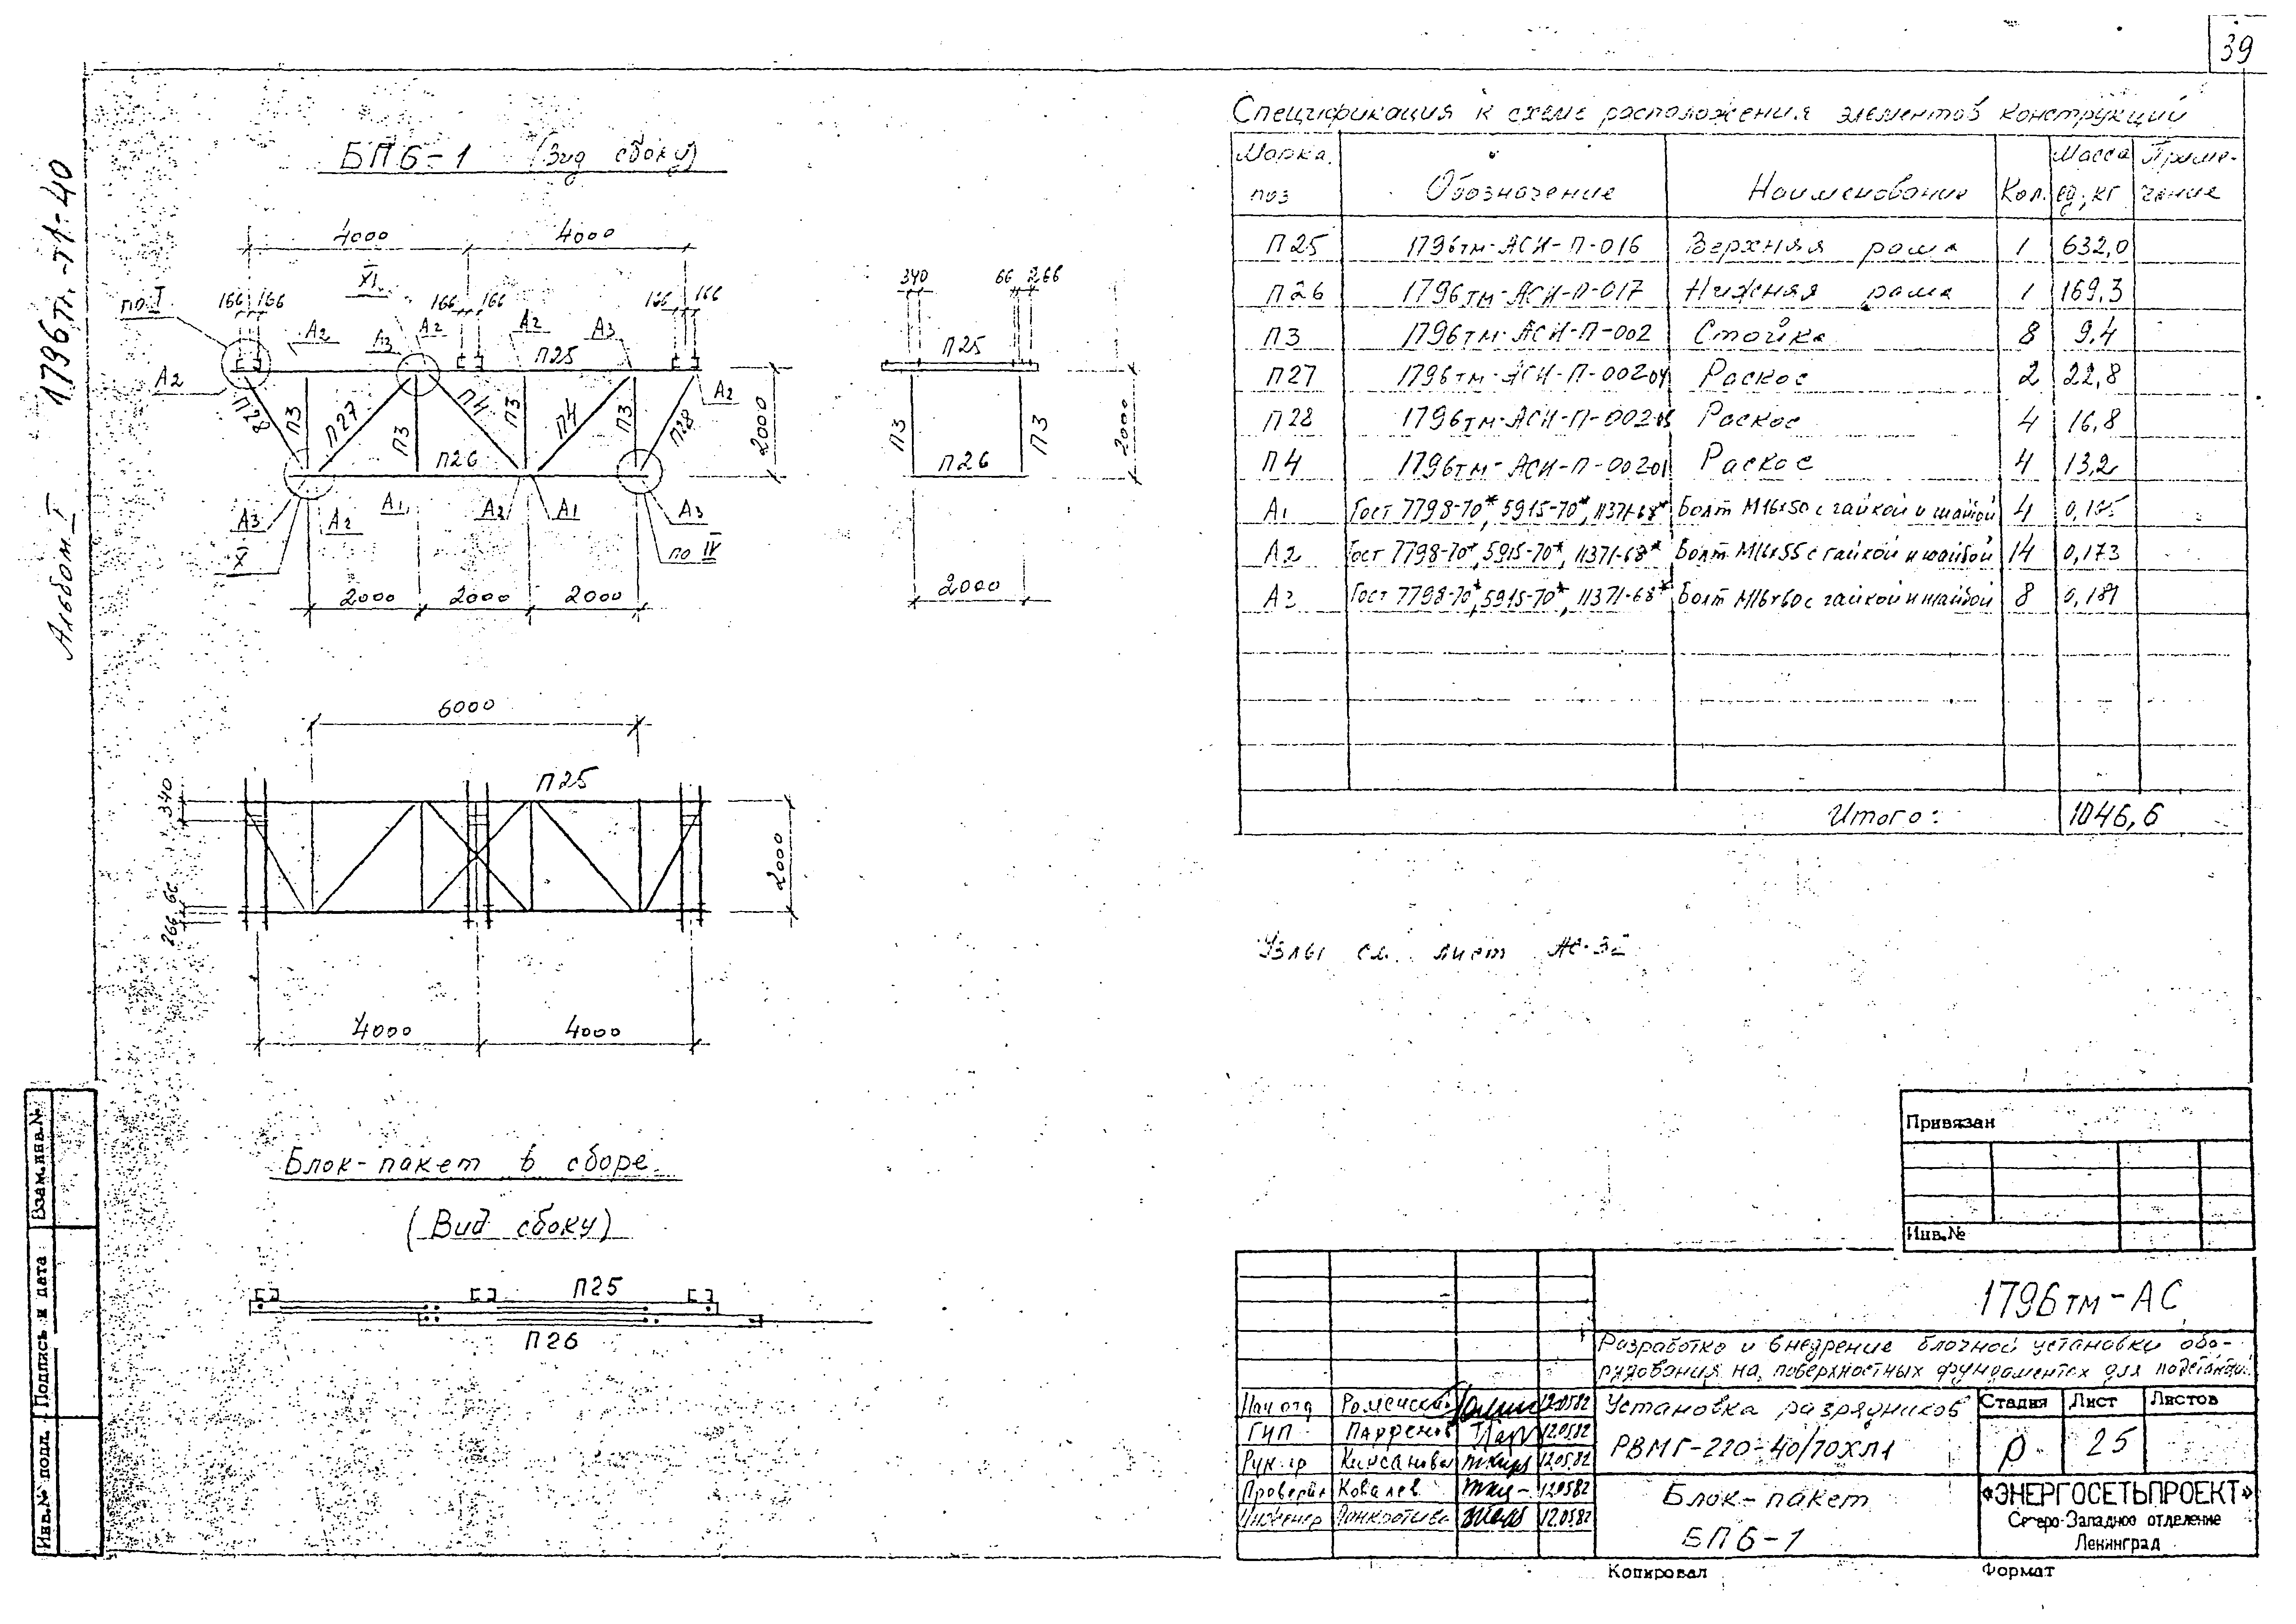 39
1796тм-т1-40
Альбом I
БП6-1 (Вид сбоку)
4000 4000
по I
XI
166 166 166 166 166 166
А2 А3 А2 А2 А3
П25
А2 А2
П28 П3 П27 П3 П4 П3 П4 П3 П28
2000
П26
А3 А2 А1 А2 А1 А3
X
по IV
2000 2000 2000
340 66 266
П25
П3 П3
П26
2000
2000
6000
П25
340
2000
266 66
4000 4000
Блок-пакет в сборе.
(Вид сбоку)
П25
П26
Спецификация к схеме расположения элементов конструкций
Марка поз Обозначение Наименование Кол. Масса ед, кг Приме-чание
П25 1796тм-АСИ-П-016 Верхняя рама 1 632,0
П26 1796тм-АСИ-П-017 Нижняя рама 1 169,3
П3 1796тм-АСИ-П-002 Стойка 8 9,4
П27 1796тм-АСИ-П-002-04 Раскос 2 22,8
П28 1796тм-АСИ-П-002 Раскос 4 16,8
П4 1796тм-АСИ-П-002-01 Раскос 4 13,2
А1 Гост 7798-70*, 5915-70*, 11371-68* Болт М16х50 с гайкой и шайбой 4
А2 Гост 7798-70*, 5915-70*, 11371-68* Болт М16х55 с гайкой и шайбой 14 0,173
А3 Гост 7798-70*, 5915-70*, 11371-68* Болт М16х60 с гайкой и шайбой 8 0,181
Итого: 1046,6
Узлы см. лист АС-32
Привязан
Инв.№
1796тм-АС
Разработка и внедрение блочной установки обо-
рудования на поверхностных фундаментах для подстанций
Нач отд Роменский 12.05.82
ГИП Парфенов 12.05.82
Рук. гр Кирсанова 12.05.82
Проверил Ковалев 12.05.82
Инженер Панкратьева 12.05.82
Установка разрядников
РВМГ-220-40/70ХЛ1
Стадия Лист Листов
Р 25
Блок-пакет
БП6-1
«ЭНЕРГОСЕТЬПРОЕКТ»
Северо-Западное отделение
Ленинград
Копировал Формат
Взам.инв.№
Подпись и дата
Инв.№ подл.